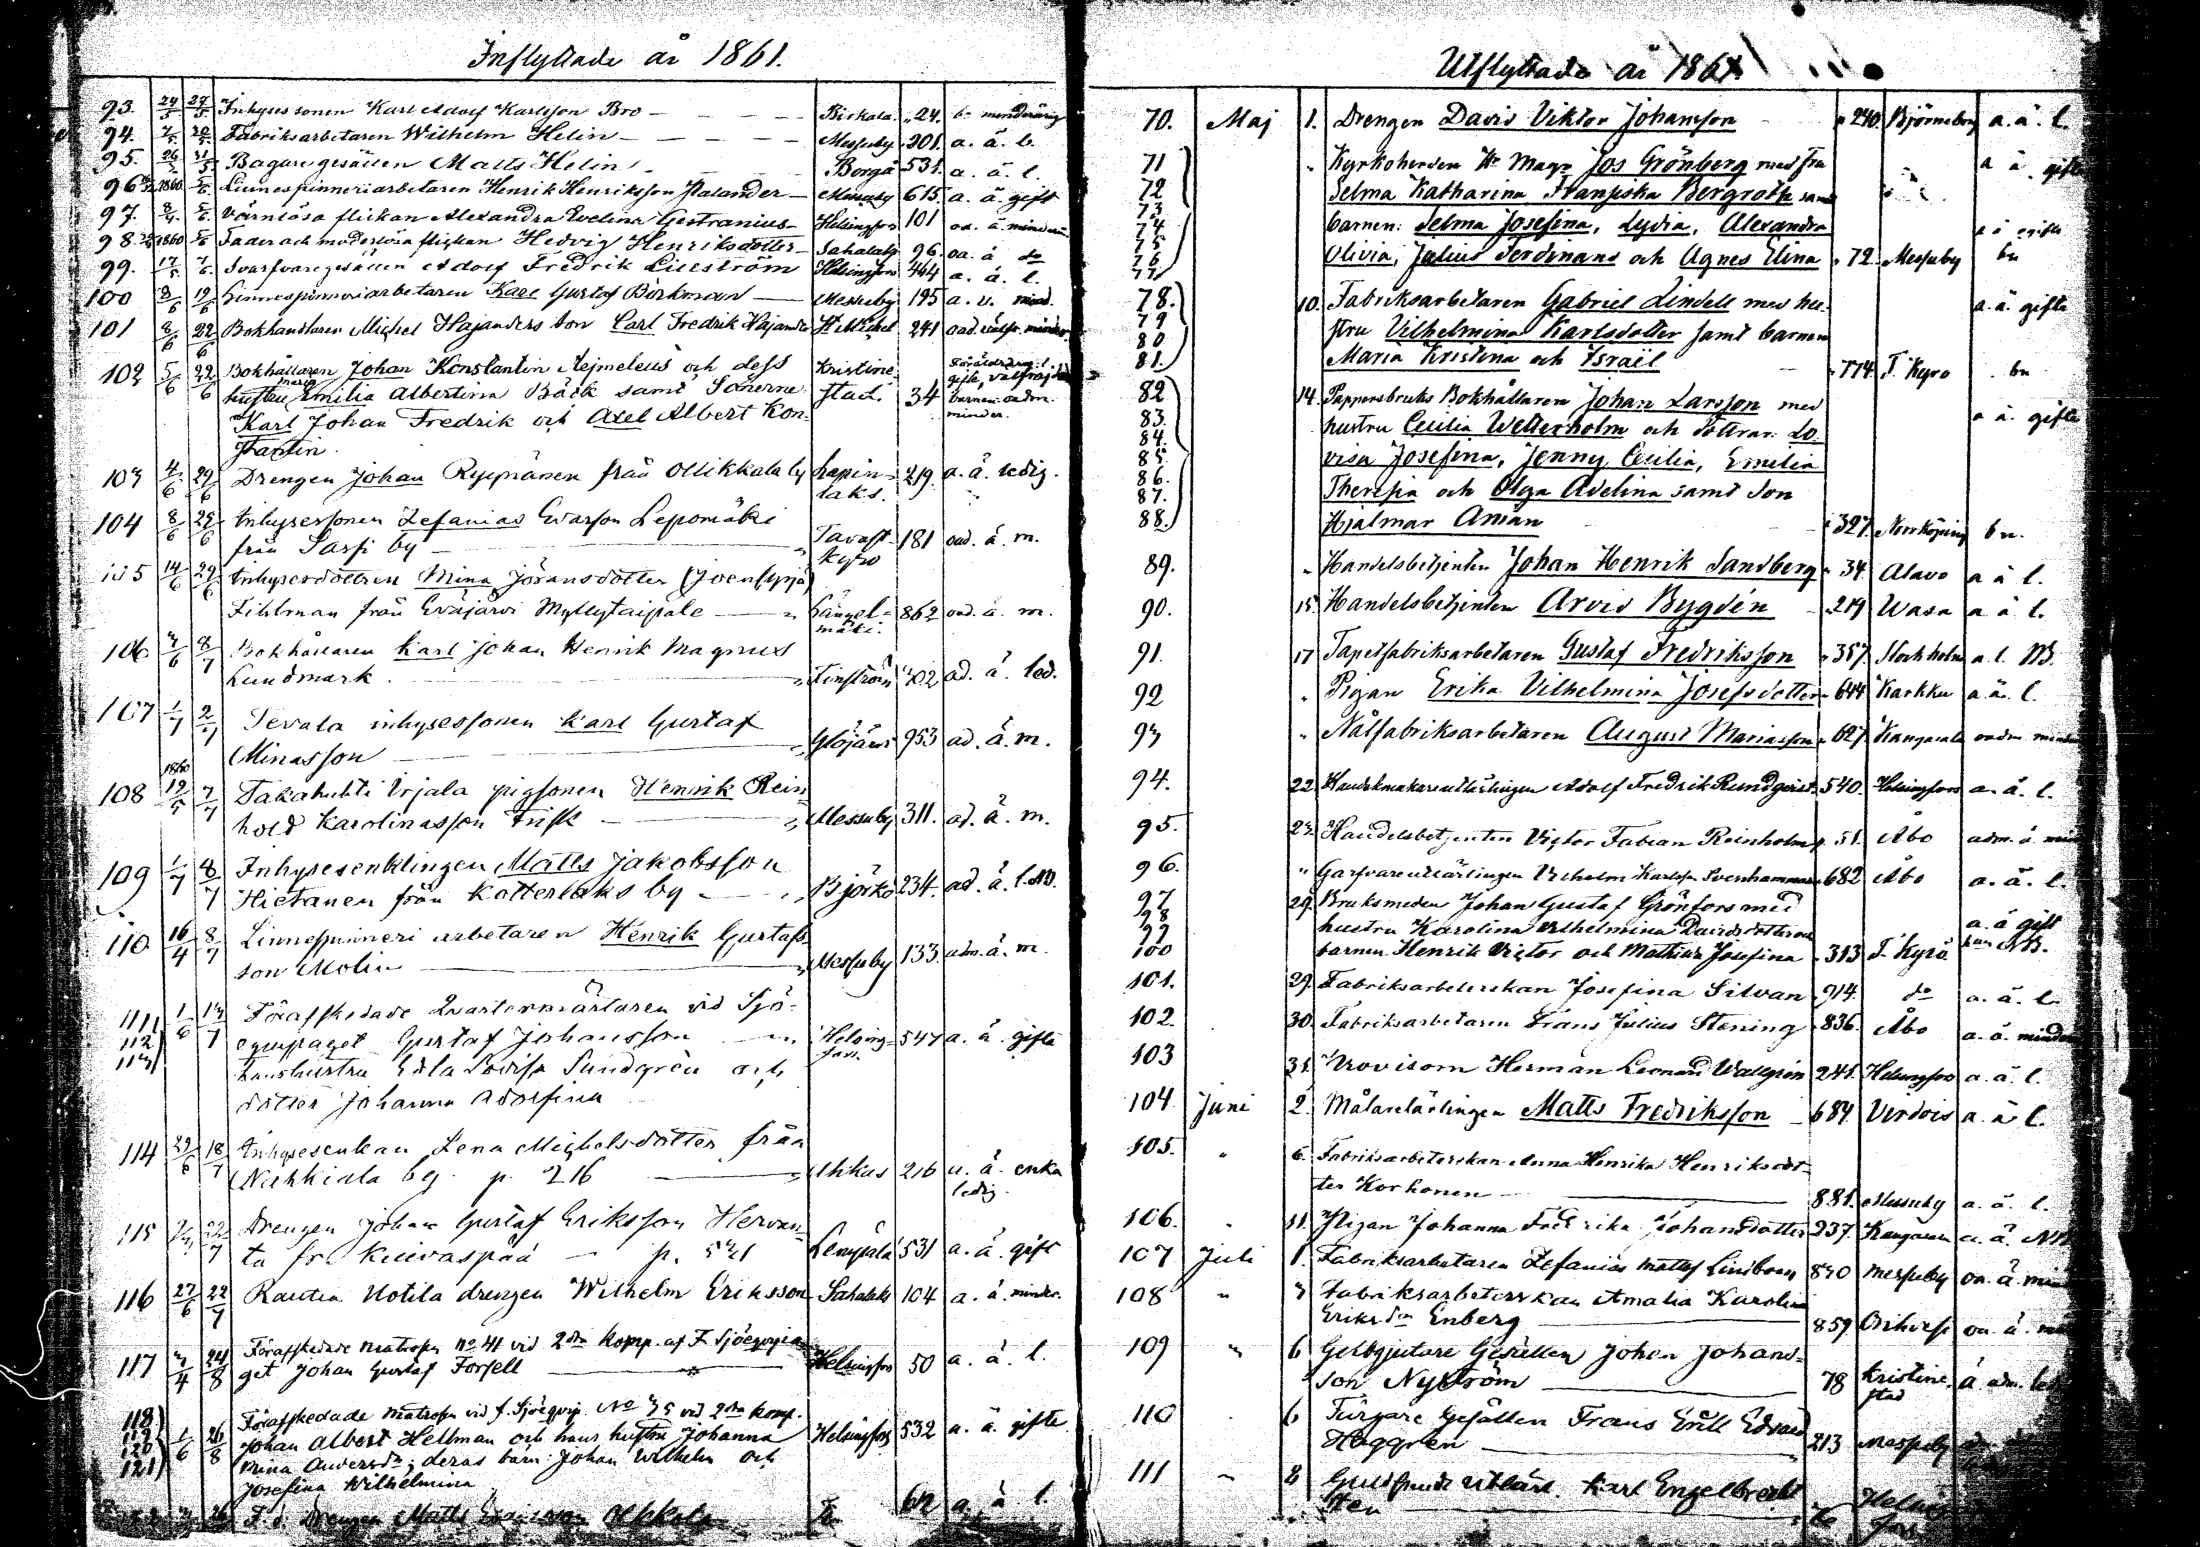 Inflyttade år 1861.
93. 24/5 27/5 Inhysessonen Karl Adolf Karlsson Bro — Birkala. 24. b. minderårig
94. 7/5 20/5 Fabriksarbetaren Wilhelm Helin — Messuby 301. a. ä. l.
95. 31/5 Bagaregesällen Matts Helin — Borgå 531. a. ä. l.
96. 1860 Linnespinneriarbetaren Henrik Henriksson Palander — Messuby 615. a. ä. gift
97. Värnlösa flickan Alexandra Evelina Gestranius — Helsingfors 101
98. 1860 Fader och moderlösa flickan Hedvig Henriksdotter — Sahalaks 96. oa. ä do
99. 17/5 7/6 Svarfvaregesällen Adolf Fredrik Lillström Helsingfors 464 a. ä. l.
100 8/6 19/6 Linnespinneriarbetaren Karl Gustaf Björkman — Messuby 195 a. ä. mind.
101 8/6 22/6 Bokhandlaren Michel Hajanders son Carl Fredrik Hajander St Michel 241
102 5/6 22/6 Bokhållaren Johan Konstantin Aejmeleus och dess Kristine-
hustru Maria Emilia Albertina Bäck samt Sönerne stad. 34
Karl Johan Fredrik och Axel Albert Kon-
stantin.
103 4/6 29/6 Drengen Johan Ryynänen från Ollikkala by Lapin- 219. a. ä. ledig.
laks.
104 8/6 29/6 Inhysessonen Zefanias Evasson Lepomäki
från Sarfi by — Tavast- 181 oad. ä. m.
kyro
105 14/6 29/6 Inhysesdottren Mina Jöransdotter (Joensyrjä)
från Eväjärvi Myllytaipale — Längel- 862 oad. ä. m.
mäki.
106 7/6 8/7 Bokhållaren Karl Johan Henrik Magnus
Lundmark. — Finström 702 ad. ä. led.
107 1/7 2/7 Tevala inhysessonen Karl Gustaf
Minasson — Ylöjärvi 953 ad. ä. m.
108 1860 19/5 7/7 Takahuhti Irjala pigsonen Henrik Rein-
hold Karolinasson Frisk — Messuby 311. ad. ä. m.
109 1/7 8/7 Inhysesenklingen Matts Jakobsson
Hietanen från Katterlaks by — Björkö 234. ad. ä. l. NB.
110 16/4 8/7 Linnespinneri arbetaren Henrik Gustafs-
son Molin — Messuby 133. adm. ä. m.
111 1/6 13/7 Förafskedade Quartermästaren vid Sjö-
112 equipaget Gustaf Johansson — Helsing- 547 a. ä. gifte
113 hans hustru Edla Lovisa Sundgrén och fors.
dotter Johanna Adolfina
114 29/6 18/7 Inhysesenkan Lena Michelsdotter från
Nakkiala by. p. 216 — Uhkus 216 a. ä. enka
ledig.
115 22/7 Drengen Johan Gustaf Eriksson Hervan-
ta fr. Kuivaspää — p. 531 Lempälä 531 a. ä. gift
116 27/6 22/7 Rautia Uotila drengen Wilhelm Eriksson Sahalaks 104 a. ä. minder.
117 7/4 24/8 Förafskedade matrosen No 41 vid 2dra komp. af F. Sjöequipa-
get Johan Gustaf Forsell — Helsingfors 50 a. ä. l.
118 Förafskedade matrosen vid f. Sjöequip. No 75 vid 2dra komp.
119 1/6 26/8 Johan Albert Hellman och hans hustru Johanna Helsingfors 532 a. ä. gifte
120 Mina Andersdr; deras barn: Johan Wilhelm och
121 Josefina Wilhelmina
26 F. d. Drengen Matts Olkkola a. ä. l.
Utflyttade år 1861
70. Maj 1. Drengen David Viktor Johansson 240. Björneborg a. ä. l.
71 " Kyrkoherden Hr Magr Jos Grönberg med fru a ä gifte
72 Selma Katharina Franziska Bergroth samt
73
74 barnen: Selma Josefina, Lydia, Alexandra
75
76 Olivia, Julius Ferdinand och Agnes Elina 72. Messuby bn
77
78. 10. Fabriksarbetaren Gabriel Lindell med hu- a. ä. gifte
79 stru Vilhelmina Karlsdotter samt barnen
80
81. Maria Kristina och Israël 774. T. Kyro bn
82 14. Pappersbruks Bokhållaren Johan Larsson med a ä. gifte
83. hustru Cecilia Wetterholm och döttrar: Lo-
84.
85 visa Josefina, Jenny Cecilia, Emelia
86.
87. Theresia och Olga Adelina samt Son
88. Hjalmar Aman 327. Norrköping bn.
89. " Handelsbetjenten Johan Henrik Sandberg 34. Alavo a ä l.
90. 15. Handelsbetjenten Arvid Bygdén 219 Wasa a ä l.
91. 17 Tapetfabriksarbetaren Gustaf Fredriksson 357. Stockholm a. l. NB.
92 " Pigan Erika Vilhelmina Josefsdotter 644 Karkku a ä. l.
93 " Nålfabriksarbetaren August Mariasson 627. Kangasala oadm. minder
94. 22. Handskmakareutlärlingen Adolf Fredrik Rundqvist 540. Helsingfors a. ä. l.
95. Handelsbetjenten Victor Fabian Reinholm 51. Åbo adm. ä min
96. " Garfvareutlärlingen Vilhelm Karlsson Svenhammar 682 Åbo a. ä. l.
97 29. Bruksmeden Johan Gustaf Grönfors med
98
99 hustru Karolina Wilhelmina Davidsdotter och a. ä gift
100 barnen Henrik Victor och Mathilda Josefina 313 T. Kyrö NB.
101. 29. Fabriksarbeterskan Josefina Silvan 914. do a. ä. l.
102. 30. Fabriksarbetaren Frans Julius Stening 836. Åbo a. ä. minder
103 31. Provisorn Herman Leonard Wallgrén 241. Helsingfors a. ä. l.
104 Juni 2. Målarelärlingen Matts Fredriksson 684 Virdois a. ä l.
105. " 6. Fabriksarbeterskan Anna Henrika Henriksdot-
ter Korhonen — 881. Messuby a. ä. l.
106. " 11. Pigan Johanna Fredrika Johansdotter 237. Kangasala a. ä. NB
107 Juli 1. Fabriksarbetaren Zefanias Mattss Lindroos 840 Messuby oa. ä. min
108 " 3 Fabriksarbeterskan Amalia Karolina
Eriksdr Enberg — 859 Orihvesi oa. ä. min
109 " 6 Gelbgjutare Gesällen Johan Johans-
son Nyström — 78 Kristine- ä. adm. led
stad
110 6 Färgare Gesällen Frans Erik Edvard
Häggren — 213 Messuby
111 " 8 Guldsmeds utlärl. Karl Engelbrecht
Helsing-
fors